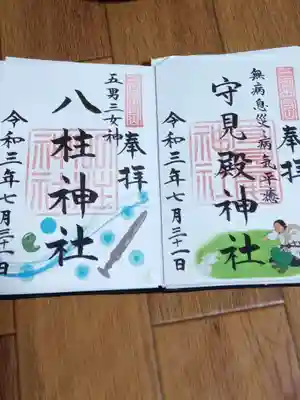 奉拝
無病息災・病気平癒
守見殿神社
令和三年七月三十一日
奉拝
五男三女神
八柱神社
令和三年七月三十一日